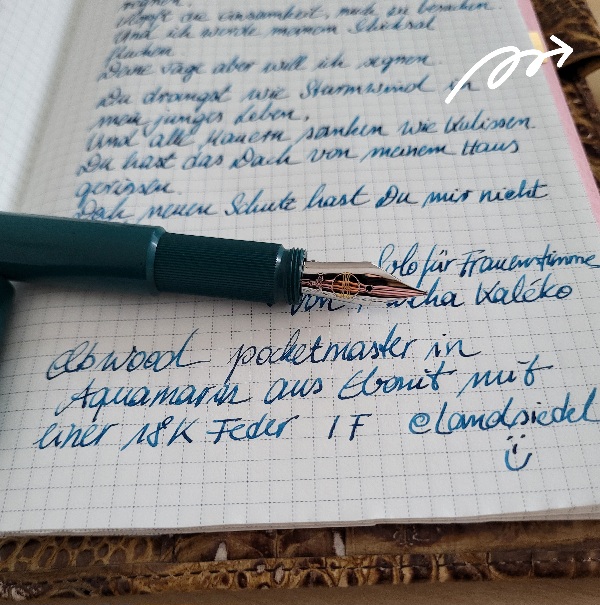 segnen.
Klopft die Einsamkeit, mich zu besuchen
Und ich werde meinem Schicksal
fluchen
Deine Tage aber will ich segnen.
Du drangst wie Sturmwind in
mein junges Leben,
Und alle Mauern sanken wie Kulissen.
Du hast das Dach von meinem Haus
gerissen.
Doch neuen Schutz hast Du mir nicht
Solo für Frauenstimme
von Kaléko
Elbwood pocketmaster in
Aquamarin aus Ebonit mit
einer 18K Feder 1 F @Landsiedel